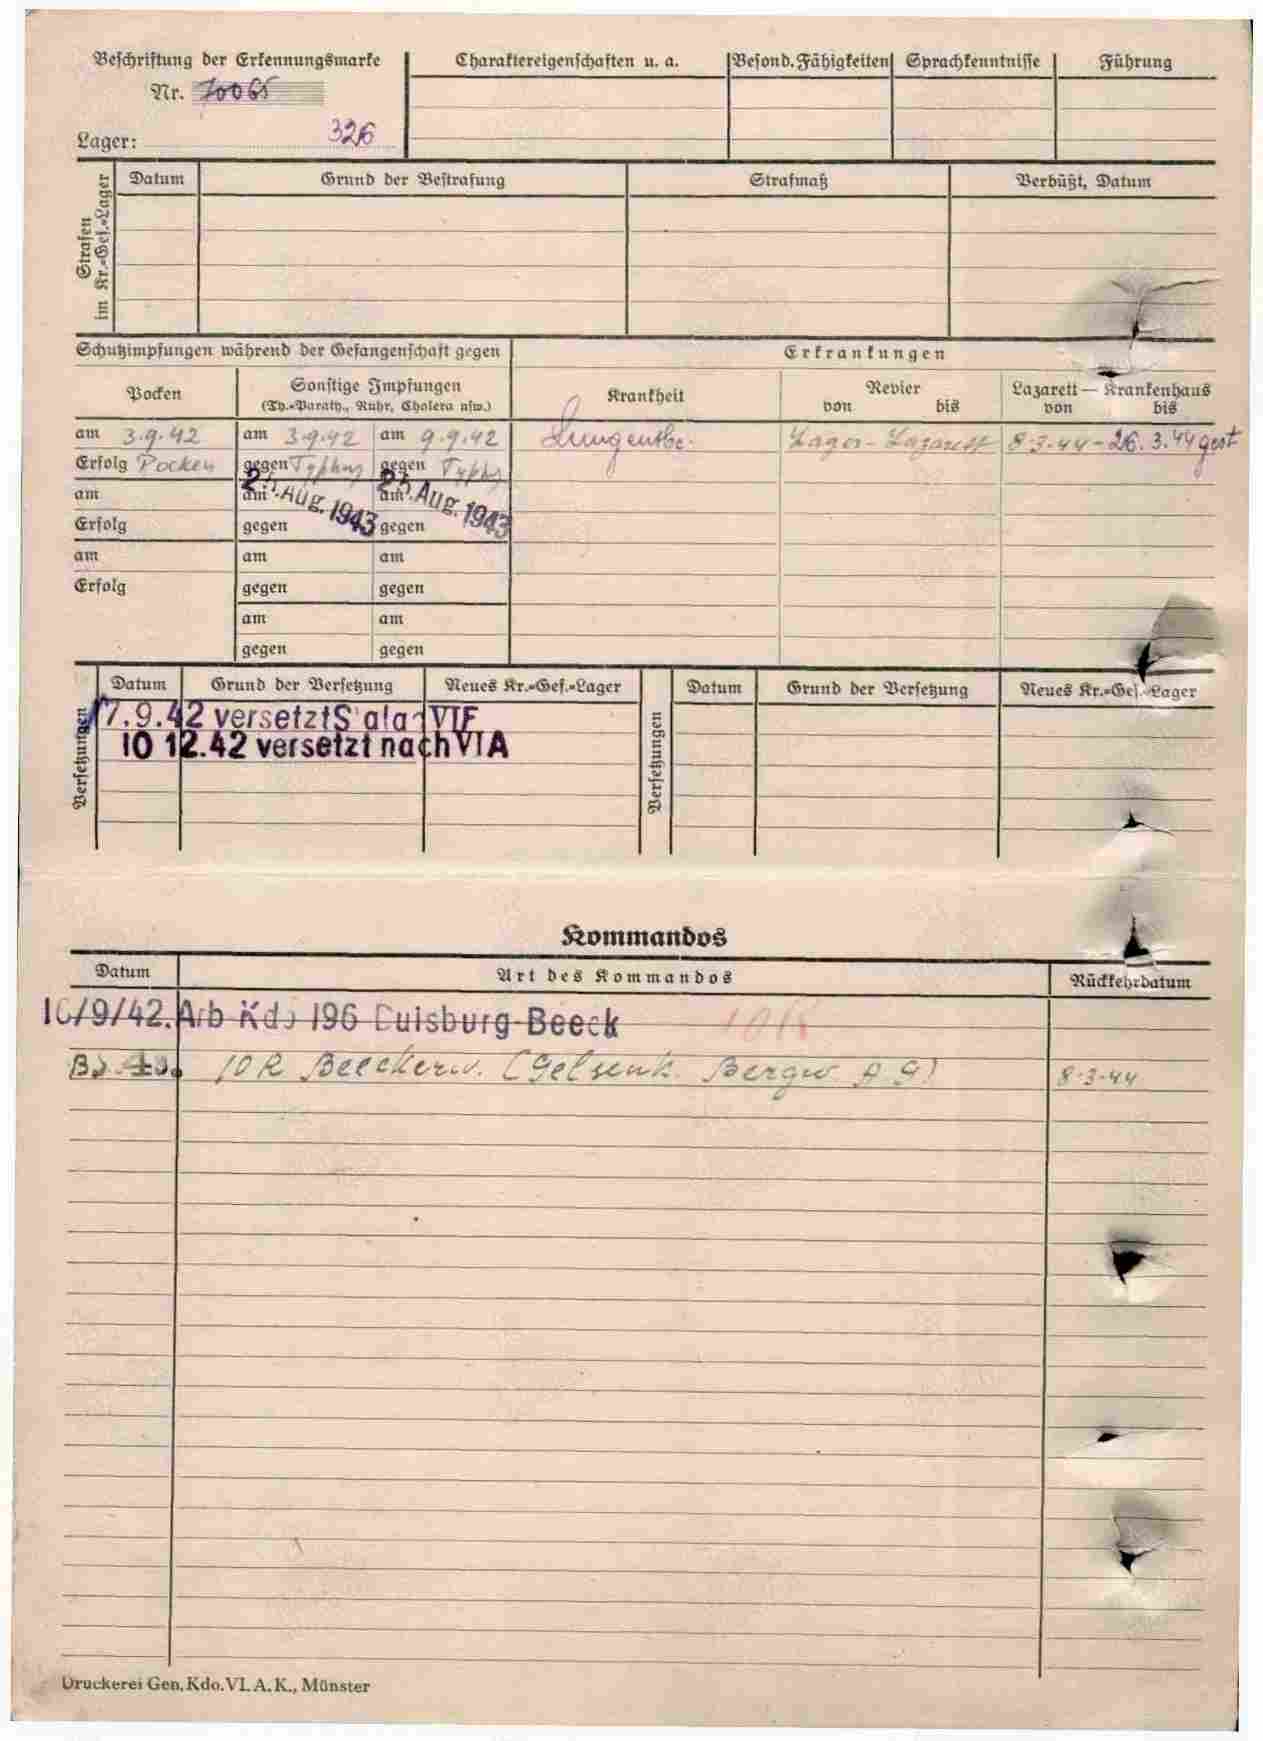 Beschriftung der Erkennungsmarke
Nr. 70065
Lager: 326
Charaktereigenschaften u. a.
Besond. Fähigkeiten
Sprachkenntnisse
Führung
Strafen im Kr.-Gef.-Lager
Datum
Grund der Bestrafung
Strafmaß
Verbüßt, Datum
Schutzimpfungen während der Gefangenschaft gegen
Erkrankungen
Pocken
Sonstige Impfungen
(Ty.-Paraty., Ruhr, Cholera usw.)
Krankheit
Revier
von bis
Lazarett — Krankenhaus
von bis
am 3.9.42 am 3.9.42 am 9.9.42 Lungentbc. Lager-Lazarett 8-3-44-26.3.44 gest
Erfolg Pocken gegen Typhus gegen Typhus
am am Aug. 1943 am Aug. 1943
Erfolg gegen gegen
am am am
Erfolg gegen gegen
am am
gegen gegen
Versetzungen
Datum
Grund der Versetzung
Neues Kr.-Gef.-Lager
Versetzungen
Datum
Grund der Versetzung
Neues Kr.-Gef.-Lager
7.9.42 versetzt Stalag VI F
10 12.42 versetzt nach VI A
Kommandos
Datum
Art des Kommandos
Rückkehrdatum
16/9/42. Arb Kdo 196 Duisburg-Beeck 10R
10 R Beeckerw. (Gelsenk. Bergw. A.G) 8-3-44
Druckerei Gen. Kdo. VI. A. K., Münster